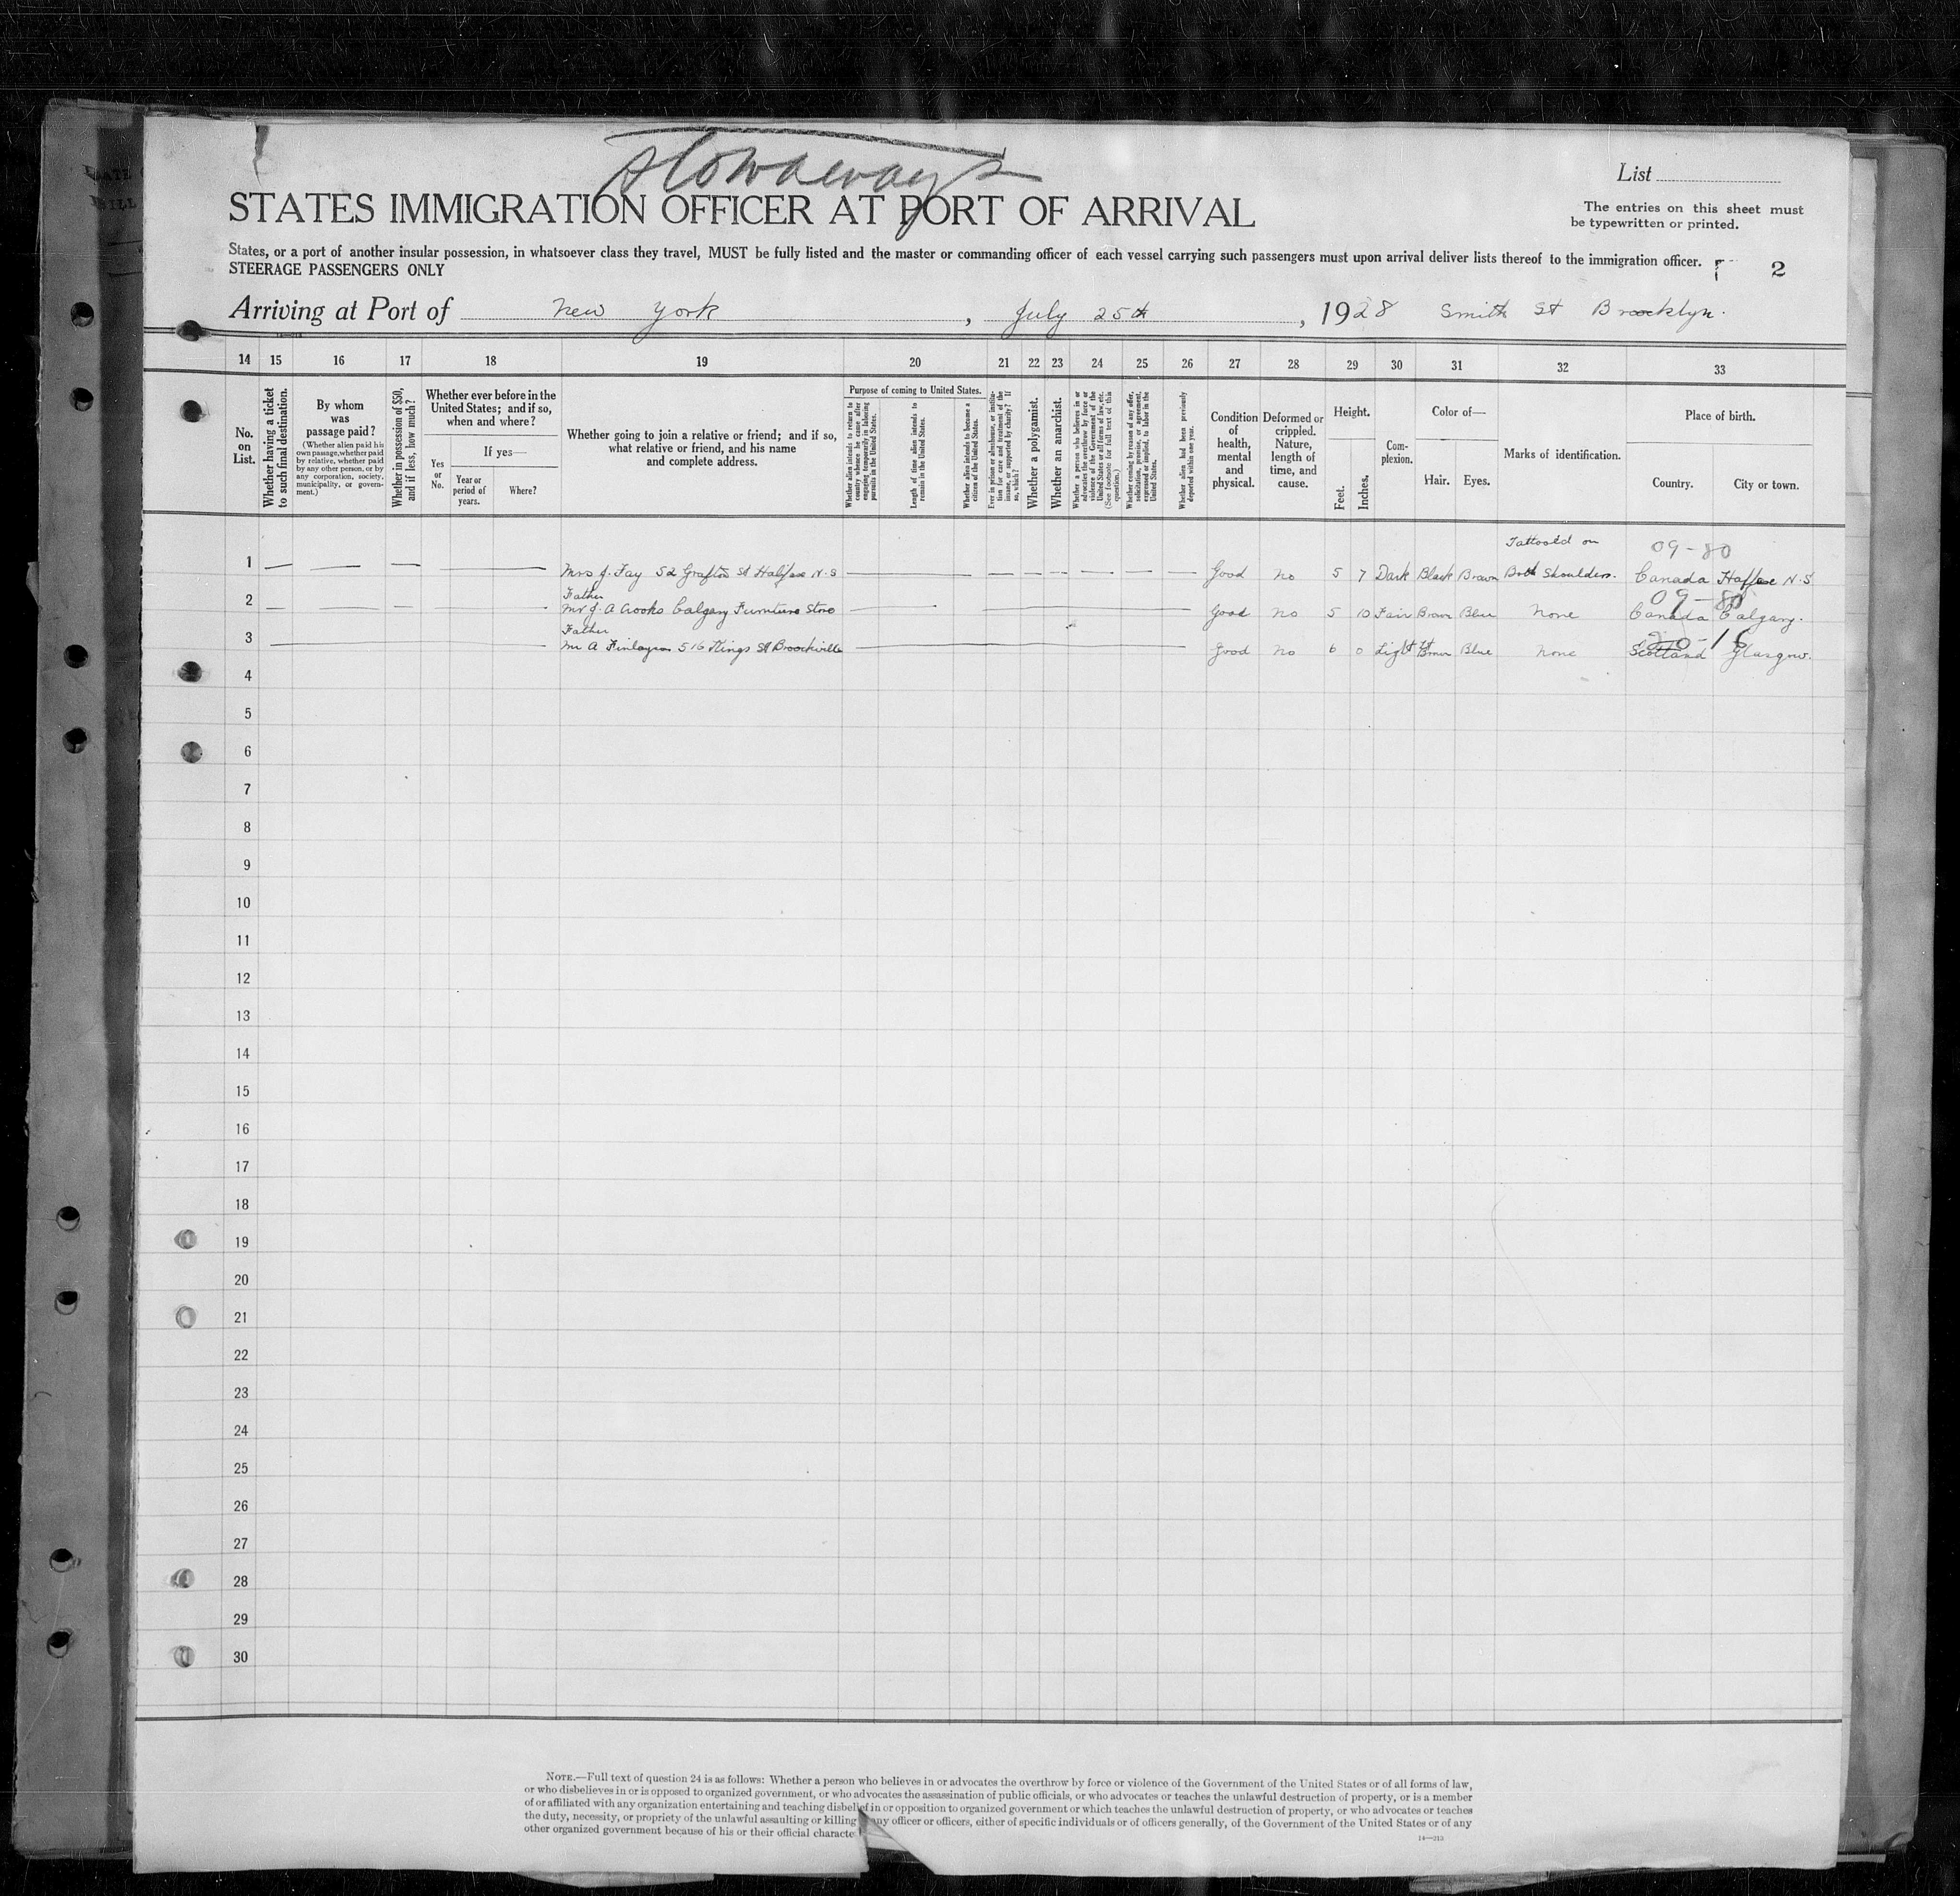 Stowaways
List
STATES IMMIGRATION OFFICER AT PORT OF ARRIVAL
The entries on this sheet must
be typewritten or printed.
States, or a port of another insular possession, in whatsoever class they travel, MUST be fully listed and the master or commanding officer of each vessel carrying such passengers must upon arrival deliver lists thereof to the immigration officer.
STEERAGE PASSENGERS ONLY
2
Arriving at Port of New York, July 25th, 1928 Smith St Broocklyn.
14 15 16 17 18 19 20 21 22 23 24 25 26 27 28 29 30 31 32 33
No. on List.
Whether having a ticket to such final destination.
By whom was passage paid?
(Whether alien paid his own passage, whether paid by relative, whether paid by any other person, or by any corporation, society, municipality, or government.)
Whether in possession of $50, and if less, how much?
Whether ever before in the United States; and if so, when and where?
Yes or No.
If yes—
Year or period of years.
Where?
Whether going to join a relative or friend; and if so, what relative or friend, and his name and complete address.
Purpose of coming to United States.
Whether alien intends to return to country whence he came after engaging temporarily in laboring pursuits in the United States.
Length of time alien intends to remain in the United States.
Whether alien intends to become a citizen of the United States.
Ever in prison or almshouse, or institution for care and treatment of the insane, or supported by charity? If so, which?
Whether a polygamist.
Whether an anarchist.
Whether a person who believes in or advocates the overthrow by force or violence of the Government of the United States or all forms of law, etc. (See footnote for full text of this question.)
Whether coming by reason of any offer, solicitation, promise, or agreement, expressed or implied, to labor in the United States.
Whether alien had been previously deported within one year.
Condition of health, mental and physical.
Deformed or crippled. Nature, length of time, and cause.
Height.
Feet.
Inches.
Complexion.
Color of—
Hair. Eyes.
Marks of identification.
Place of birth.
Country. City or town.
Tattooed on 09-80
1 Mrs J. Fay 52 Grafton St Halifax N.S Good no 5 7 Dark Black Brown Both Shoulders. Canada Halifax N.S
Father 09-80
2 Mr J. A Crooks Calgary Furniture Store Good no 5 10 Fair Brown Blue None Canada Calgary.
Father 20-16
3 Mr A Finlayson 516 Kings St Broockville Good no 6 0 Light Lt Brown Blue None Scotland Glasgow.
4
5
6
7
8
9
10
11
12
13
14
15
16
17
18
19
20
21
22
23
24
25
26
27
28
29
30
NOTE.—Full text of question 24 is as follows: Whether a person who believes in or advocates the overthrow by force or violence of the Government of the United States or of all forms of law,
or who disbelieves in or is opposed to organized government, or who advocates the assassination of public officials, or who advocates or teaches the unlawful destruction of property, or is a member
of or affiliated with any organization entertaining and teaching disbelief in or opposition to organized government or which teaches the unlawful destruction of property, or who advocates or teaches
the duty, necessity, or propriety of the unlawful assaulting or killing any officer or officers, either of specific individuals or of officers generally, of the Government of the United States or of any
other organized government because of his or their official characte
14—213